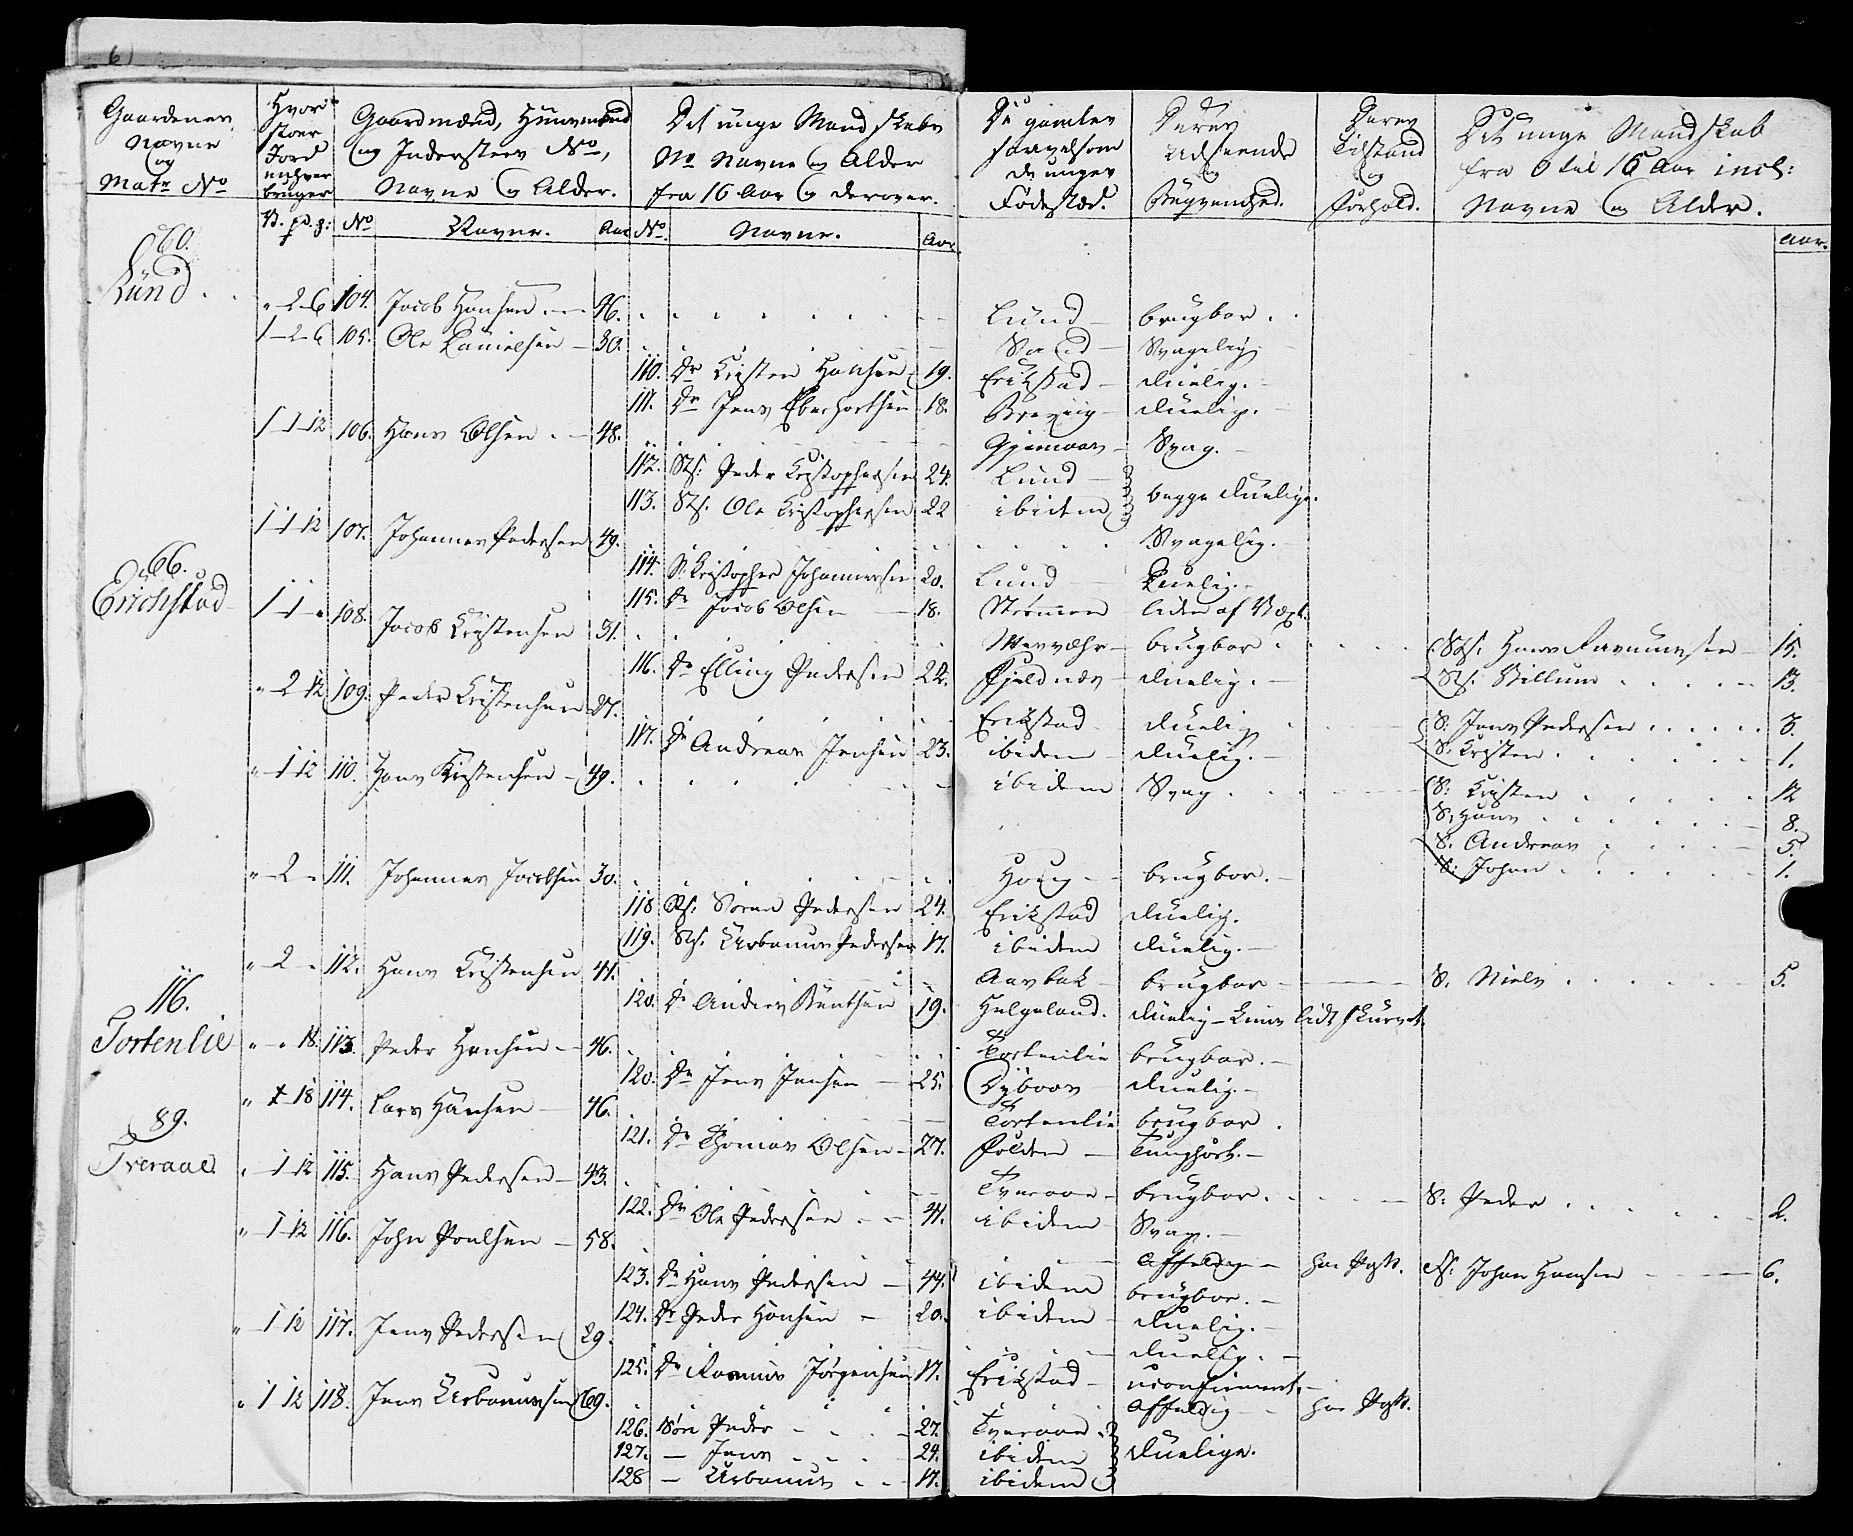 6
Gaardenes Navne og Matr No
Hvor stoer Jord enhver bruger
Gaardmænd, Huusmænd og Indersters No, Navne og Alder.
Det unge Mandskabs No Navne og Alder fra 16 Aar og derover.
De gamles saavelsom de unges Fødested.
Deres Udseende og Bequemhed.
Deres Tilstand og Forhold.
Det unge Mandskab fra 0 til 16 Aar incl: Navne og Alder.
V. pd. g: No Navne. Aar No. Navne. Aar. Aar.
60.
Lund
" - 2 - 6 104. Jacob Hansen 46. Lund brugbar.
1 - 2 - 6 105. Ole Danielsen 30. Svagelig
110. Dr Kristen Hansen 19. Erikstad duelig.
111. Dr Jens Eberharthsen 18. duelig.
1 - 1 - 12 106. Hans Olsen 48. Svag.
112. Sts: Peder Kristophersen 24. Lund
113. Sts: Ole Kristophersen 22 ibidem begge duelige.
1 - 1 - 12 107. Johannes Pedersen 49. Svagelig.
66.
Erichstad
114. S: Kristopher Johannessen 20. Lund duelig.
115. Dr Jacob Olsen 18. Strømmen liden af Vext.
1 - 1 - " 108. Jacob Kristensen 31. brugbar Sts: Hans Rasmussen 15.
116. Dr Elling Pedersen 22. Fjeldnes duelig. Sts: Villum 13.
" - 2 12 109. Peder Kristensen 27. Erikstad duelig S: Jens Pedersen 3.
117. Dr Andreas Jensen 23. ibidem duelig. S: Kristen 1.
" - 1 12 110. Hans Kristensen 49. ibidem Svag S: Kristen 12
S: Hans 8.
S. Andreas 5.
S: Johan 1.
" - 2 - " 111. Johannes Jacobsen 30. Houg brugbar.
118 Sts: Søren Pedersen 24. Erikstad duelig.
119. Sts. Urbanus Pedersen 17. ibidem duelig.
" - 2 - " 112. Hans Kristensen 41. Aasbak brugbar S. Niels 5.
120. Dr Anders Knuthsen 19. Helgeland. duelig lidt skurvet.
116.
Tortenlie
" - " 18. 113. Peder Hansen 46. Tortenlie brugbar.
120. Dr Jens Jensen 25. Dybvos duelig.
" 18 114. Lars Hansen 46. Tortenlie brugbar.
121. Dr Thomas Olsen 27. Folden Tunghørt.
89.
Tveraae.
" - 1 12 115. Hans Pedersen 43. Tveraae brugbar. S: Peder 2.
122. Dr Ole Pedersen 41. ibidem Svag.
" - 1 12 116. John Poulsen 58. Affældig har Pass. Johan Hansen 6.
123. Dr Hans Pedersen 44. ibidem brugbar.
124. Dr Peder Hansen 20. ibidem duelig.
" 1 12 117. Jens Pedersen 29. duelig.
125. Dr Rasmus Jørgensen 17. Erikstad uconfirmert.
" 1 12 118. Jens Urbanussen 69. Affældig har Pass.
126. Søn Peder 27. Tveraae
127. - Jens 24. ibidem duelige.
128 - Urbanus 17. ibidem